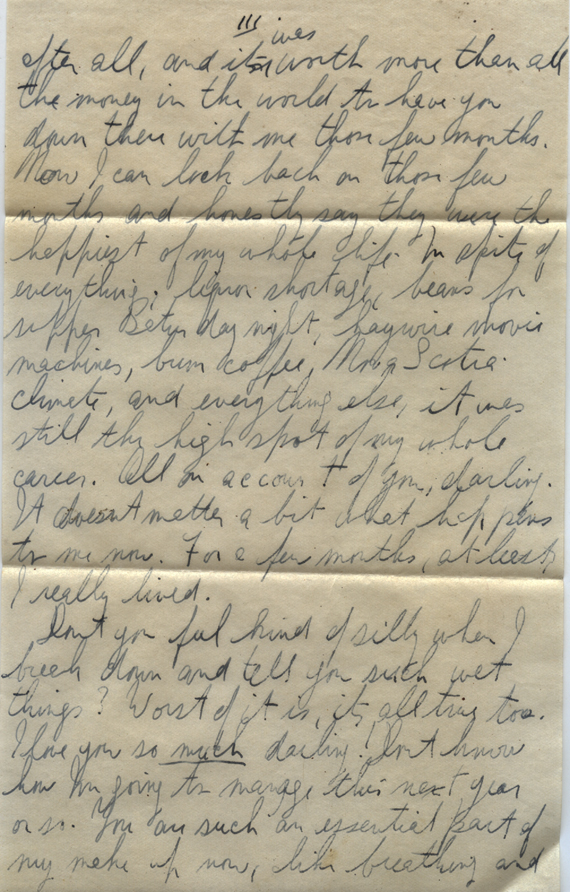 III
after all, and it was worth more than all
the money in the world to have you
down there with me those few months.
Now I can look back on those few
months and honestly say they were the
happiest of my whole life. In spite of
everything; liquor shortage, beans for
supper Saturday night, haywire movie
machines, bum coffee, Nova Scotia
climate, and everything else, it was
still the high spot of my whole
career. All on account of you, darling.
It doesn't matter a bit what happens
to me now. For a few months, at least,
I really lived.
Don't you feel kind of silly when I
break down and tell you such wet
things? Worst of it is, its all true too.
I love you so much darling! Don't know
how I'm going to manage this next year
or so. You are such an essential part of
my make up now, like breathing and